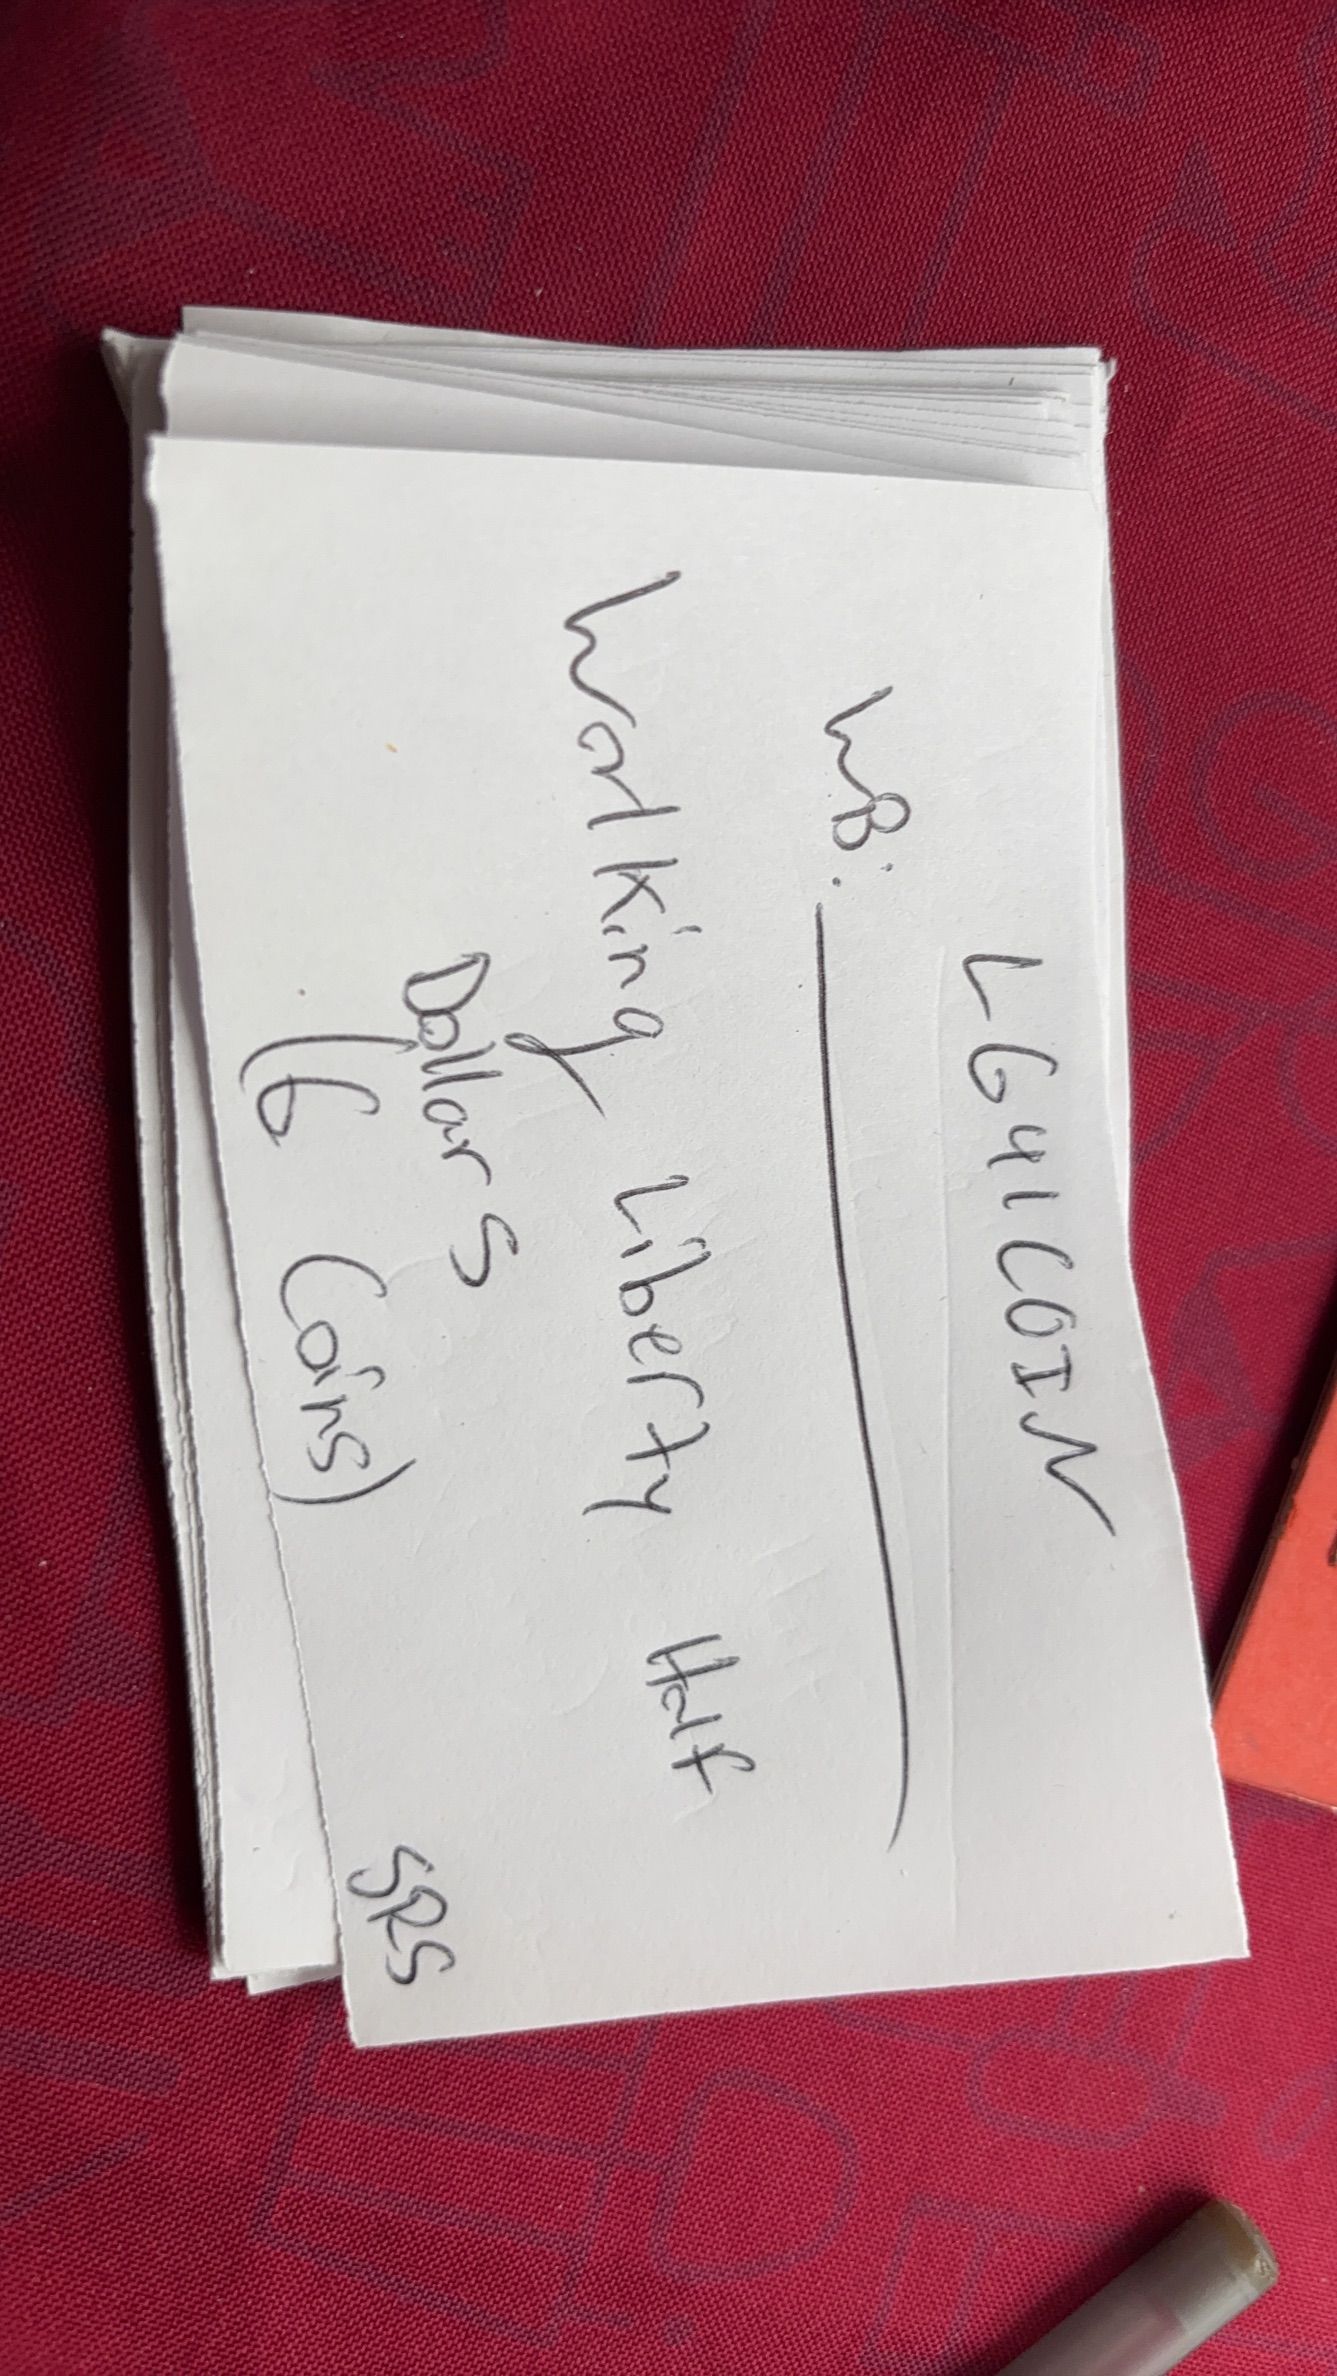 L641COIN
WB:
Walking Liberty Half
Dollars
(6 Coins)
SRS